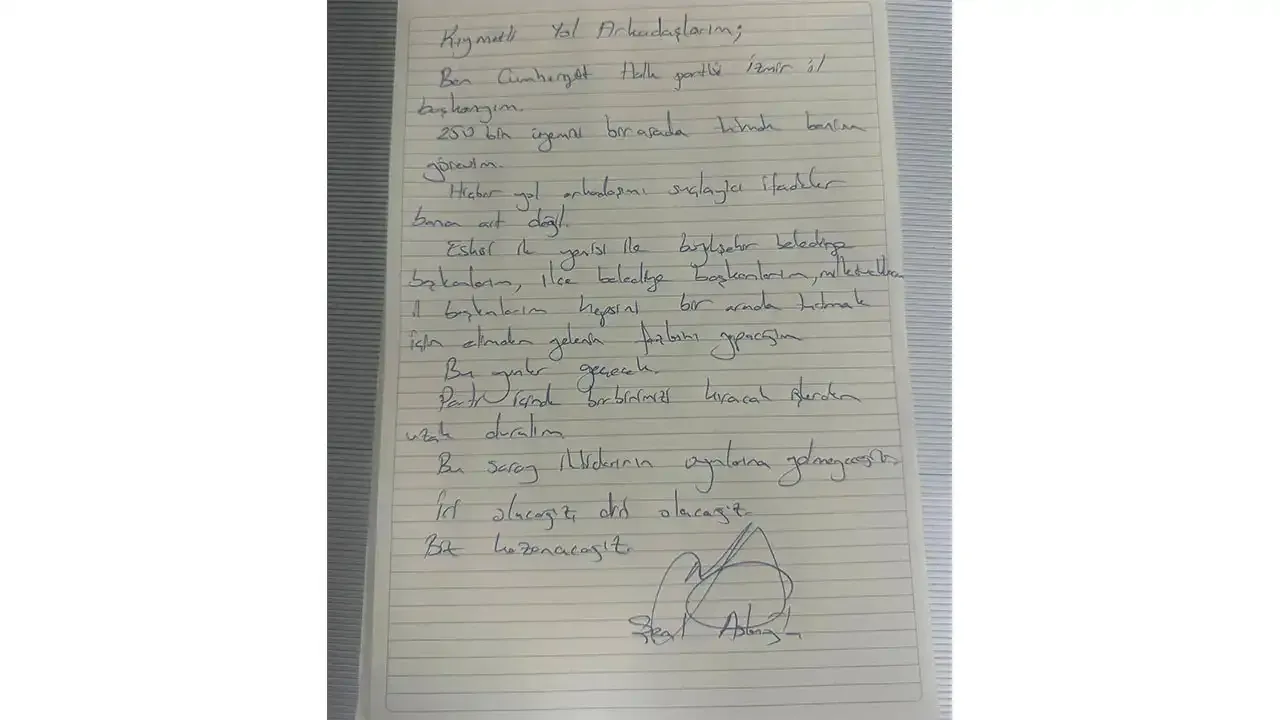 Kıymetli Yol Arkadaşlarım;
Ben Cumhuriyet Halk partisi İzmir il
başkanıyım.
250 bin üyemizi bir arada tutmak benim
görevim.
Hiçbir yol arkadaşımı suçlayıcı ifadeler
bana ait değil.
Eskisi ile yenisi ile büyükşehir belediye
başkanlarım, ilçe belediye başkanlarım, milletvekillerim
il başkanlarım hepsini bir arada tutmak
için elimden gelenin fazlasını yapacağım
Bu günler geçecek.
Parti içinde birbirimizi kıracak işlerden
uzak duralım
Bu saray iktidarının oyunlarına gelmeyeceğiz
İri olacağız, diri olacağız.
Biz kazanacağız.
Şenol Aslanoğlu